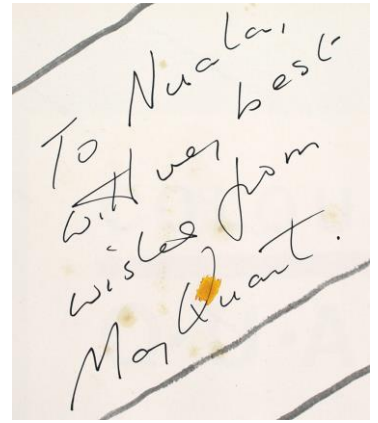 To Nuala,
with very best
wishes from
Mary Quant.